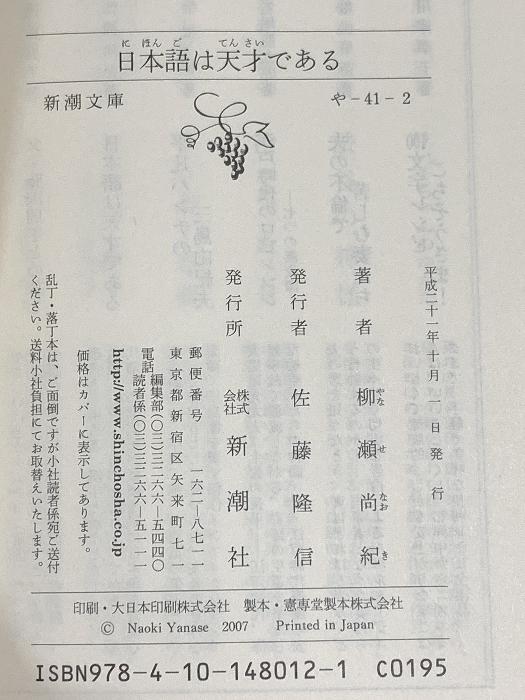 日本語は天才である
にほんご てんさい
新潮文庫
や-41-2
平成二十一年十月一日発行
著者 柳瀬尚紀
やなせなおき
発行者 佐藤隆信
発行所 株式会社 新潮社
郵便番号 一六二―八七一一
東京都新宿区矢来町七一
電話 編集部(〇三)三二六六―五四四〇
読者係(〇三)三二六六―五一一一
http://www.shinchosha.co.jp
価格はカバーに表示してあります。
乱丁・落丁本は、ご面倒ですが小社読者係宛ご送付
ください。送料小社負担にてお取替えいたします。
印刷・大日本印刷株式会社 製本・憲専堂製本株式会社
© Naoki Yanase 2007 Printed in Japan
ISBN978-4-10-148012-1 C0195